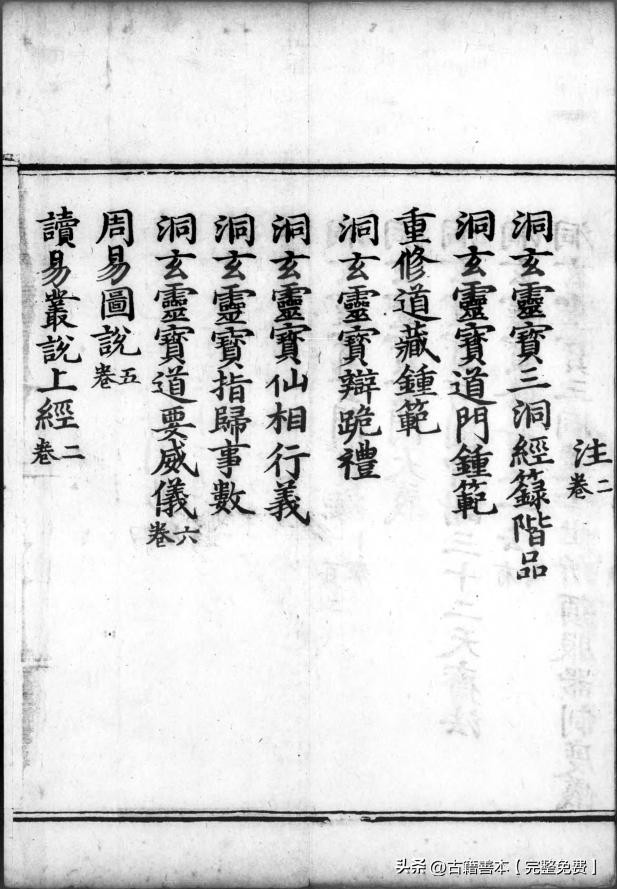 注二卷
洞玄靈寶三洞經籙階品
洞玄靈寶道門鍾範
重修道藏鍾範
洞玄靈寶辯跪禮
洞玄靈寶仙相行義
洞玄靈寶指歸事數
洞玄靈寶道要威儀六卷
周易圖說五卷
讀易叢說上經二卷
头条 @古籍善本【完整免费】